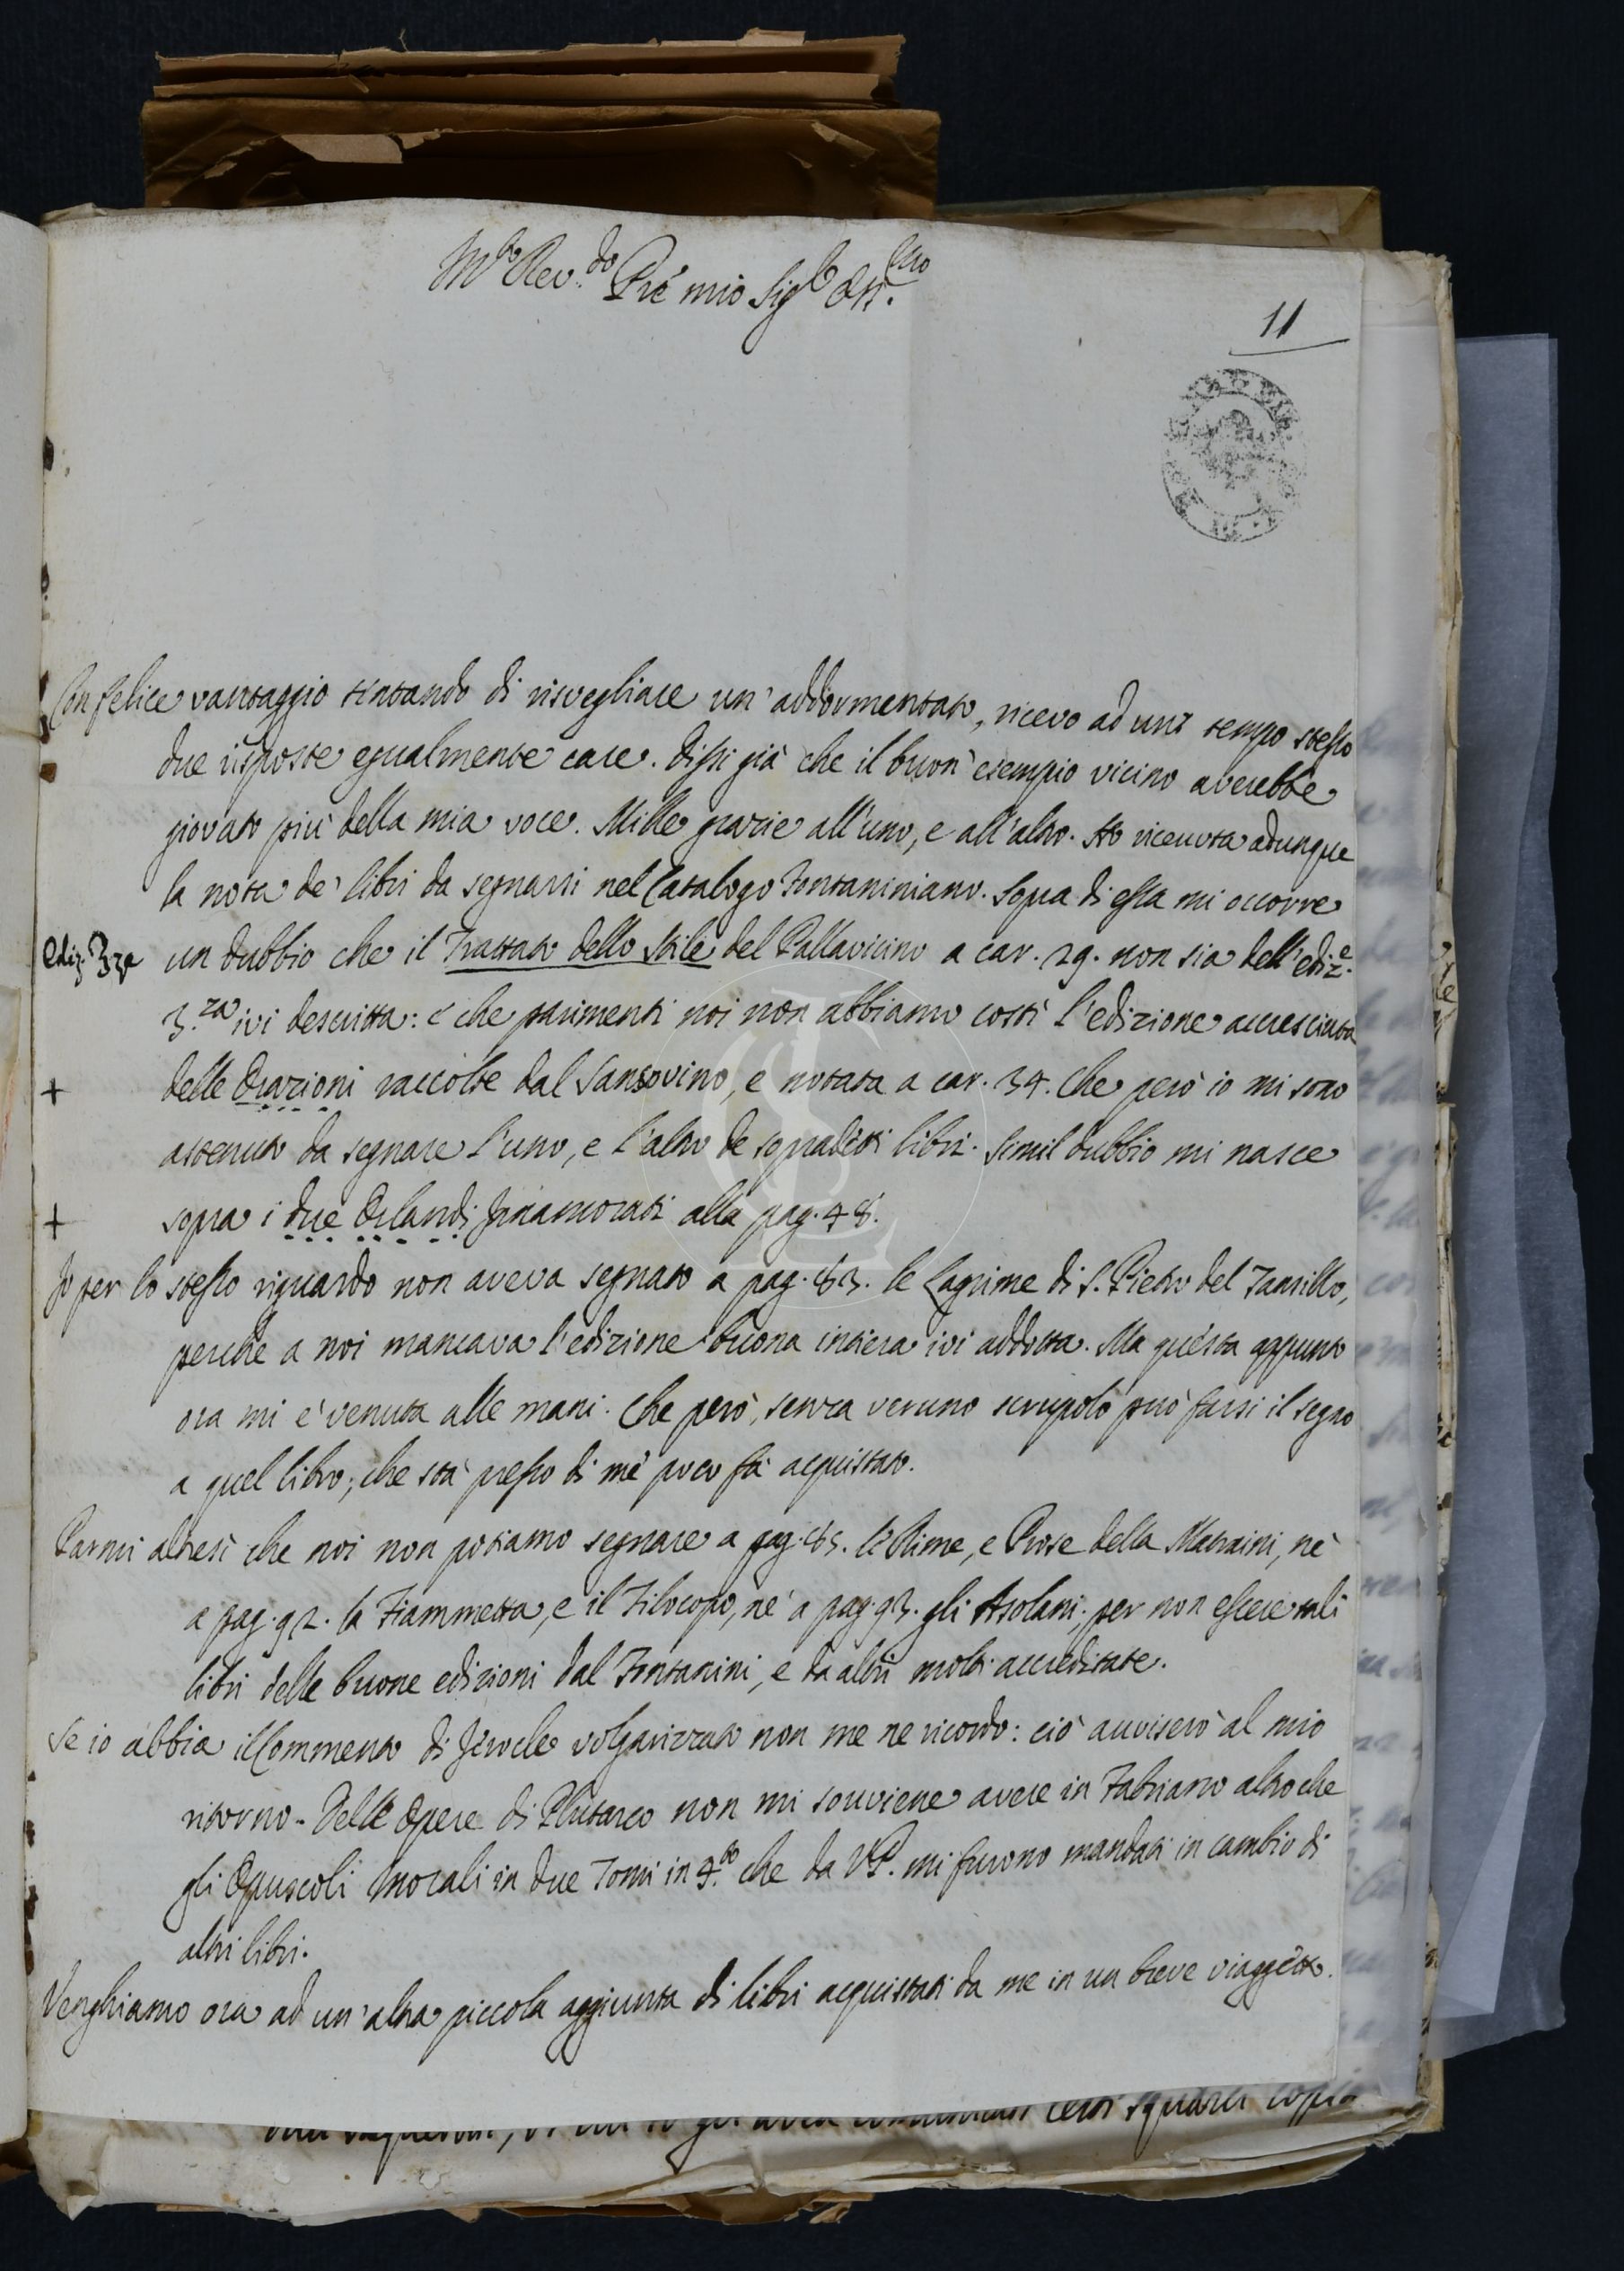 M.to Rev.do Pre mio Sig.e Oss.mo
11
Con felice vantaggio tentando di risvegliare un' addormentato, ricevo ad una tempo stesso
due risposte egualmente care. Dissi già che il buon' esempio vicino averebbe
giovato più della mia voce. Mille grazie all'uno, e all'altro. Ho ricevuta adunque
la nota de' libri da segnarsi nel Catalogo Fontaniniano. Sopra di essa mi occorre
Ediz. 3za un dubbio che il Trattato dello Stile del Pallavicino a car. 29. non sia dell'ediz.e
3.za ivi descritta: e che parimenti noi non abbiamo costì l'edizione accresciuta
+ delle Orazioni raccolte dal Sansovino, e notata a car. 34. Che però io mi sono
astenuto da segnare l'uno, e l'altro de sopradetti libri. Simil dubbio mi nasce
+ sopra i due Orlandi Innamorati alla pag. 48.
Io per lo stesso riguardo non aveva segnato a pag. 83. le Lagrime di S. Pietro del Tansillo,
perche a noi mancava l'edizione buona intiera ivi addotta. Ma questa appunto
ora mi è venuta alle mani. Che però, senza veruno scrupolo può farsi il segno
a quel libro; che stà presso di mè poco fà acquistato.
Parmi altresì che noi non potiamo segnare a pag. 85. le Rime, e Prose della Matraini, nè
a pag. 92. la Fiammetta, e il Filocopo, nè a pag. 93. gli Asolani; per non essere tali
libri delle buone edizioni dal Fontanini, e da altri molti accreditate.
Se io abbia il Commento di Jerocle volgarizzato non me ne ricordo: ciò avviserò al mio
ritorno. Delle Opere di Plutarco non mi souviene avere in Fabriano altro che
gli Opuscoli Morali in due Tomi in 4.to che da V.P. mi furono mandati in cambio di
altri libri.
Venghiamo ora ad un' altra piccola aggiunta di libri acquistati da me in un breve viaggetto.
squarci copia